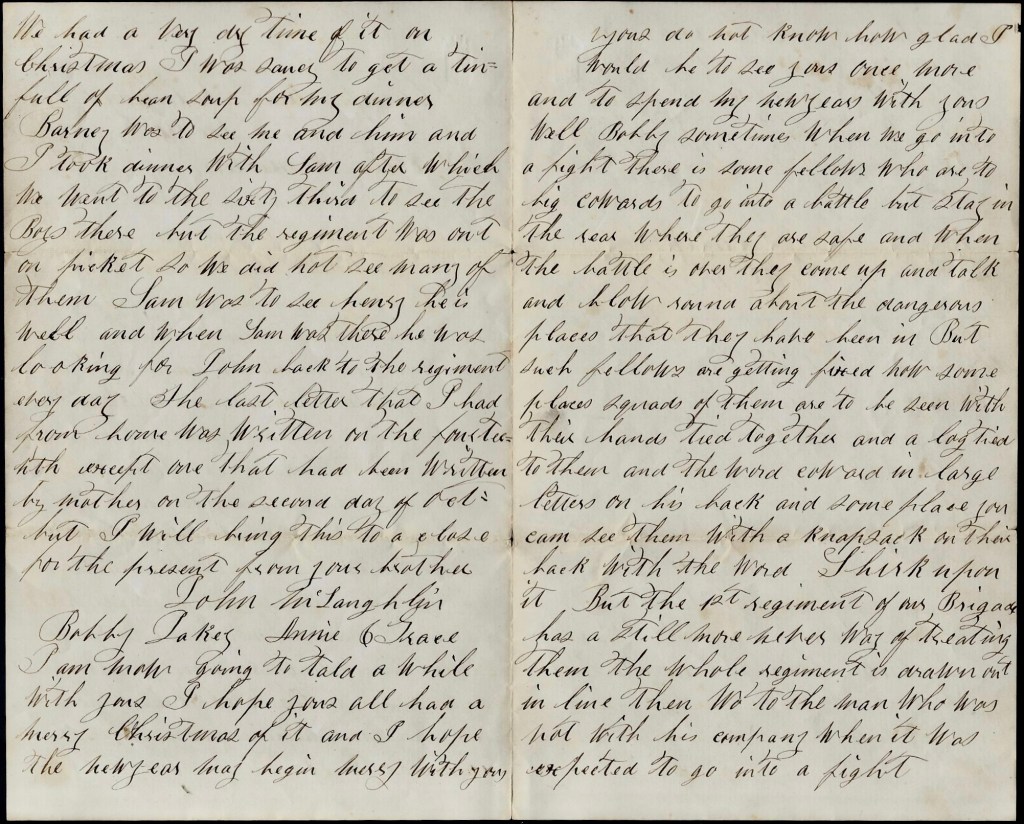 We had a very dry time of it on
Christmas I was saucy to get a tin=
full of bean soup for my dinner
Barney was to see me and him and
I took dinner with Sam after which
we went to the sixty third to see the
Boys there but the regiment was out
on picket so we did not see many of
them Sam was to see henry he is
well and when Sam was there he was
looking for John back to the regiment
every day The last letter that I had
from home was written on the fourtee-
nth except one that had been written
by mother on the second day of Oct=
but I will bring this to a close
for the present from your brother
John McLaughlin
Bobby Jakey Annie & Grace
I am now going to tald a while
with yous I hope yous all had a
merry Christmas of it and I hope
the newyear may begin merry with yous
yous do not know how glad I
would be to see yous once more
and to spend my newyears with yous
Well Bobby sometimes when we go into
a fight there is some fellows who are to
big cowards to go into a battle but stay in
the rear where they are safe and when
the battle is over they come up and talk
and blow round about the dangerous
places that they have been in But
such fellows are getting fixed now some
places squads of them are to be seen with
their hands tied together and a log tied
to them and the word coward in large
letters on his back and some place you
can see them with a knapsack on their
back with the word Shirk upon
it But the 1st regiment of our Brigade
has a still more way of treating
them the whole regiment is drawn out
in line then Wo to the man who was
not with his company when it was
expected to go into a fight